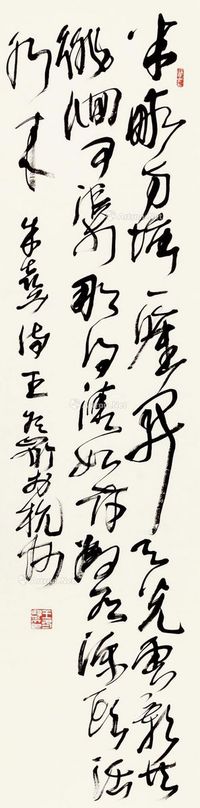 半畝方塘一鑒開天光雲影共
徘徊問渠那得清如許為有源頭活
水來 朱熹詩 王冬齡杭州